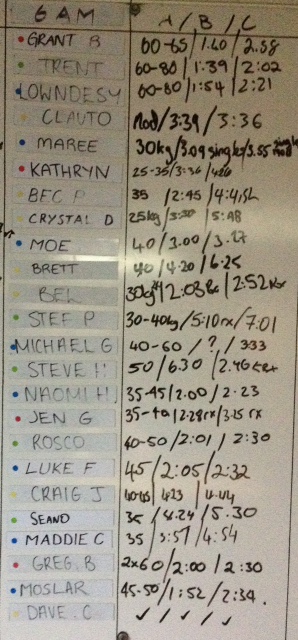 6 AM A / B / C
GRANT B 60-65/1.40/2.58
TRENT 60-80/1:39/2:02
LOWNDESY 60-80/1:54/2:21
CLAUTO Mod/3:39/3:36
MAREE 30kg/3.09 singles/3.55 single mod
KATHRYN 25-35/3:36/4:20
BFC P 35/2:45/4:45
CRYSTAL D 25kg/3:30/5:48
MOE 40/3.00/3.27
BRETT 40/4.20/6.25
BEL 30kg/2:03Rx/2:52Rx
STEF P 30-40kg/5:10rx/7:01
MICHAEL G 40-60/?/333
STEVE H 50/6.30/2.46
NAOMI H 35-45/2:00/2:23
JEN G 35-40/2:28rx/3:25 rx
ROSCO 40-50/2:01/2:30
LUKE F 45/2:05/2:32
CRAIG J 40-45/4:23/4:44
SEANO 35/4.24/5.30
MADDIE C 35/3:57/4:54
GREG. B 2x60/2:00/2:30
MOSLAR 45-50/1:52/2:34.
DAVE. C ✓/✓/✓/✓